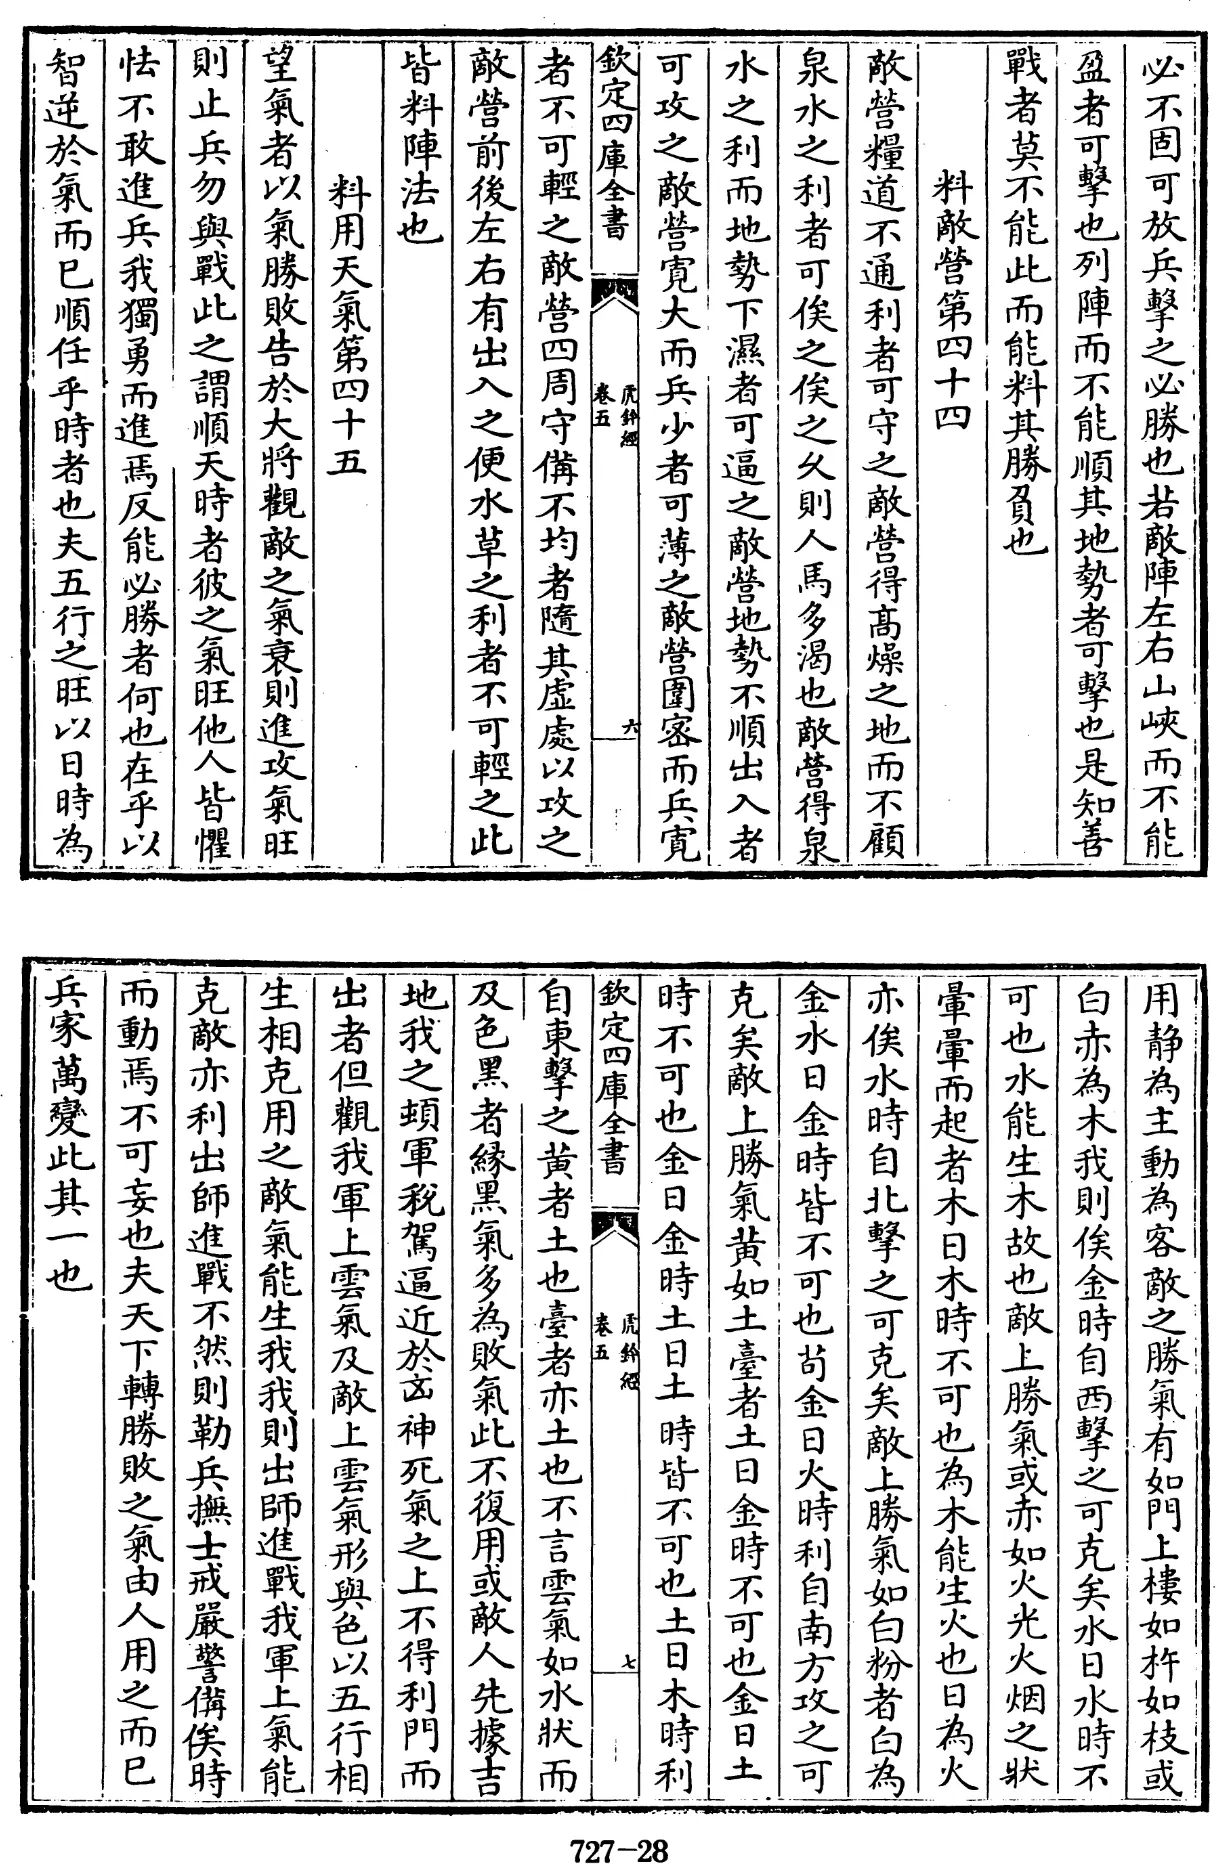 必不固可放兵擊之必勝也若敵陣左右山峽而不能
盈者可擊也列陣而不能順其地勢者可擊也是知善
戰者莫不能此而能料其勝負也
料敵營第四十四
敵營糧道不通利者可守之敵營得髙燥之地而不顧
泉水之利者可俟之俟之乆則人馬多渴也敵營得泉
水之利而地勢下濕者可逼之敵營地勢不順出入者
可攻之敵營寛大而兵少者可薄之敵營圍宻而兵寛
欽定四庫全書
虎鈐經
卷五
六
者不可輕之敵營四周守備不均者隨其虚處以攻之
敵營前後左右有出入之便水草之利者不可輕之此
皆料陣法也
料用天氣第四十五
望氣者以氣勝敗告於大將觀敵之氣衰則進攻氣旺
則止兵勿與戰此之謂順天時者彼之氣旺他人皆懼
怯不敢進兵我獨勇而進焉反能必勝者何也在乎以
智逆於氣而已順任乎時者也夫五行之旺以日時為
用静為主動為客敵之勝氣有如門上樓如杵如枝或
白赤為木我則俟金時自西擊之可克矣水日水時不
可也水能生木故也敵上勝氣或赤如火光火烟之狀
暈暈而起者木日木時不可也為木能生火也日為火
亦俟水時自北擊之可克矣敵上勝氣如白粉者白為
金水日金時皆不可也茍金日火時利自南方攻之可
克矣敵上勝氣黄如土臺者土日金時不可也金日土
時不可也金日金時土日土時皆不可也土日木時利
欽定四庫全書
虎鈐經
卷五
七
自東擊之黄者土也臺者亦土也不言雲氣如水狀而
及色黑者縁黑氣多為敗氣此不復用或敵人先據吉
地我之頓軍稅駕逼近於㐫神死氣之上不得利門而
出者但觀我軍上雲氣及敵上雲氣形與色以五行相
生相克用之敵氣能生我我則出師進戰我軍上氣能
克敵亦利出師進戰不然則勒兵撫士戒嚴警備俟時
而動焉不可妄也夫天下轉勝敗之氣由人用之而已
兵家萬變此其一也
727-28